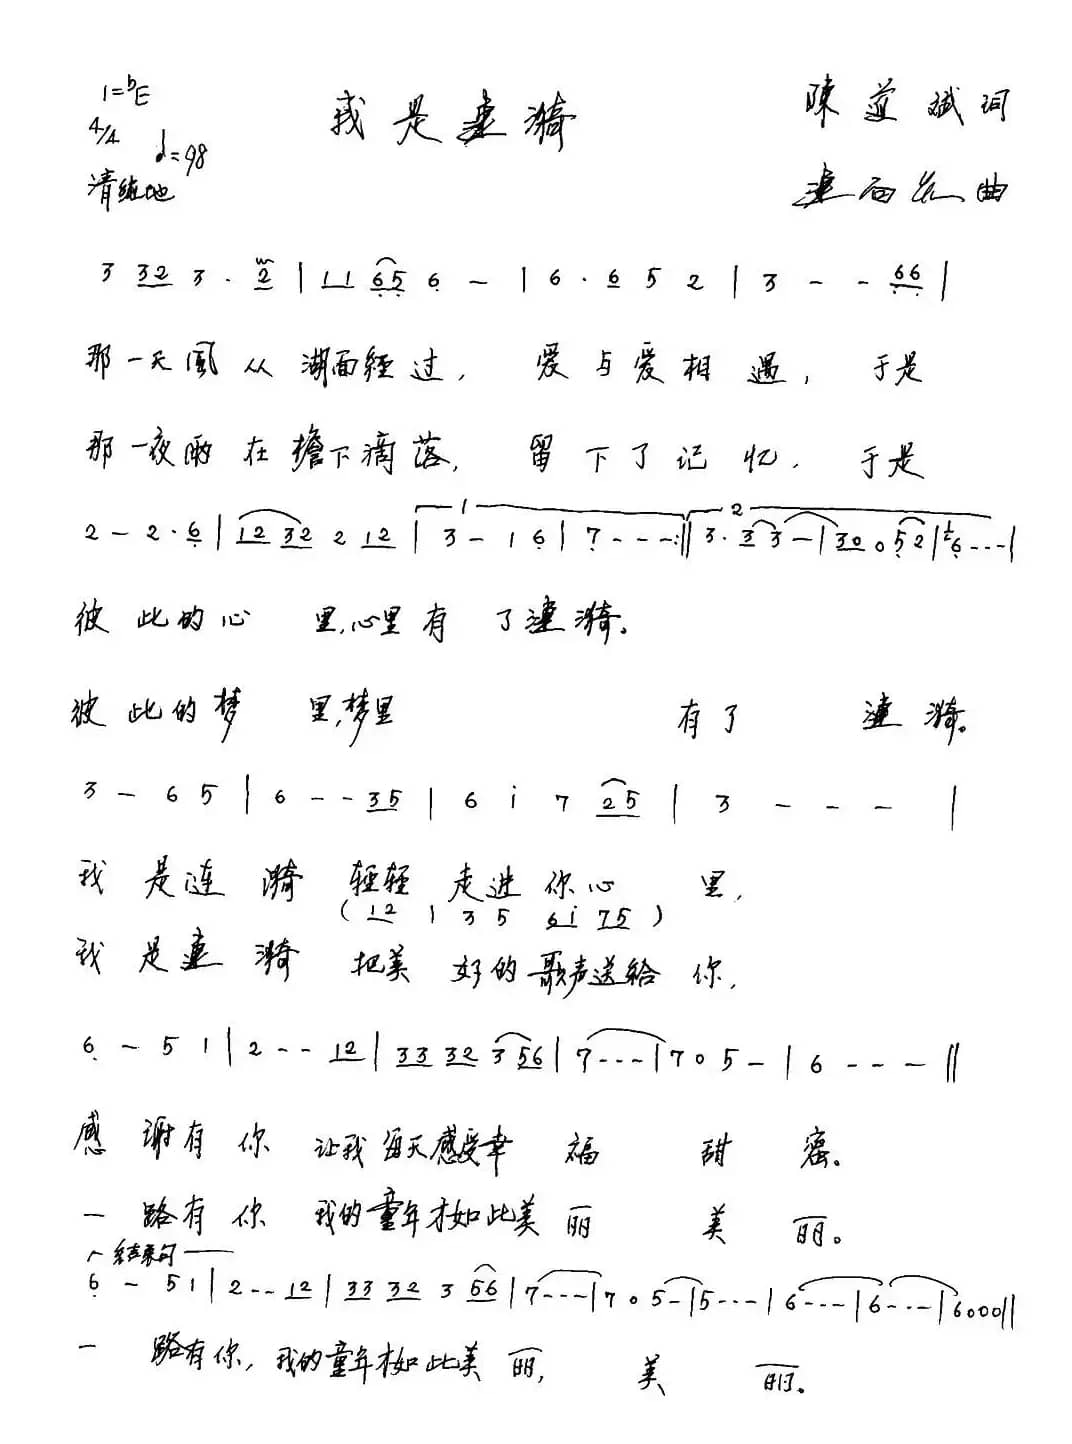 1=bE
我是涟漪
陳道斌词
4/4
♩=98
清纯地
曲
3 32 3 · 2 | 11 65 6 – | 6 · 6 5 2 | 3 – – 66 |
那一天風从湖面經过，爱与爱相遇，于是
那一夜雨在檐下滴落，留下了记忆，于是
2 – 2 · 6 | 12 32 2 12 | 1 3 – 1 6 | 7 – – – :‖ 2 3 · 3 3 – | 30 0 52 | 6 – – – |
彼此的心里，心里有了涟漪。
彼此的梦里，梦里有了涟漪。
3 – 6 5 | 6 – – 35 | 6 i 7 25 | 3 – – – |
我是涟漪輕輕走进你心里，
( 12 1 3 5 6i 75 )
我是涟漪把美好的歌声送給你，
6 – 5 1 | 2 – – 12 | 33 32 3 56 | 7 – – – | 7 0 5 – | 6 – – – ‖
感谢有你让我每天感受幸福甜蜜。
一路有你我的童年才如此美丽美丽。
结束句
6 – 5 1 | 2 – – 12 | 33 32 3 56 | 7 – – – | 7 0 5 – | 5 – – – | 6 – – – | 6 – – – | 6000 ‖
一路有你，我的童年才如此美丽，美丽。